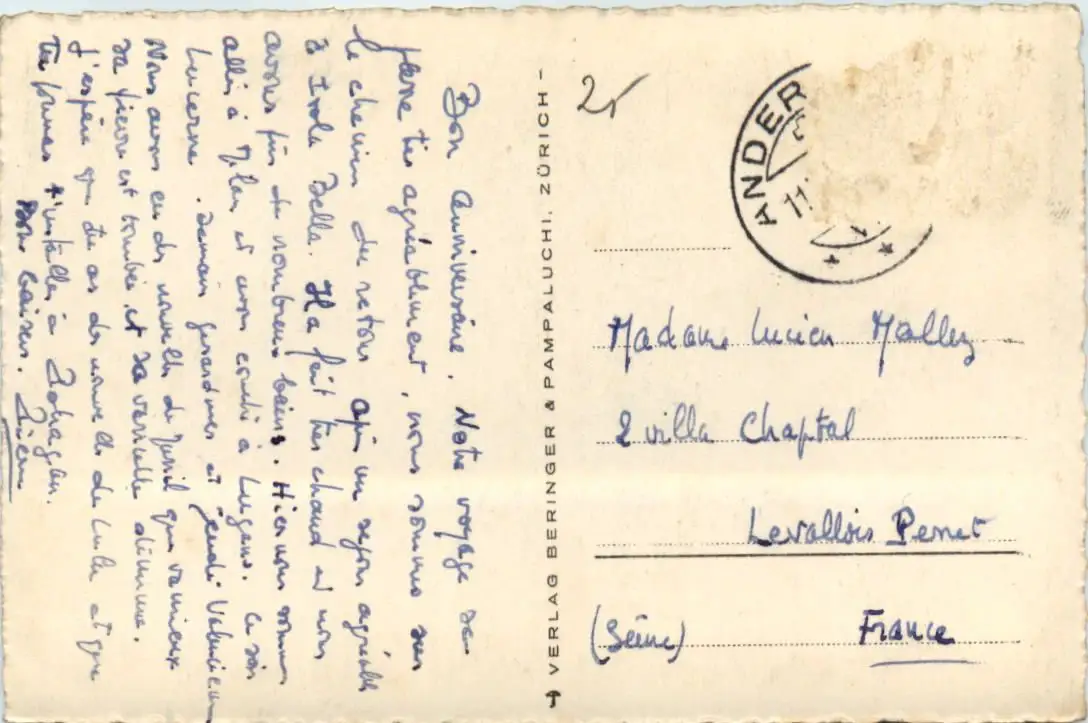 Bon anniversaire. Notre voyage se
passe très agréablement, nous sommes sur
le chemin du retour après un séjour agréable
à Isola Bella. Il a fait très chaud et nous
avons pris de nombreux bains. Hier nous sommes
allés à Milan et avons couché à Lugano. Ce soir
Lucerne. Demain gerardmer et jeudi Valenciennes
Nous avons eu des nouvelles de
sa fièvre est tombée et sa varicelle diminue.
J'espère que tu as des nouvelles de Lulu et que
tu t'installer à
Bons baisers.
VERLAG BERINGER & PAMPALUCHI, ZÜRICH
25
ANDER
11.
Madame Lucien Mallez
2 villa Chaptal
Levallois Perret
(Seine) France